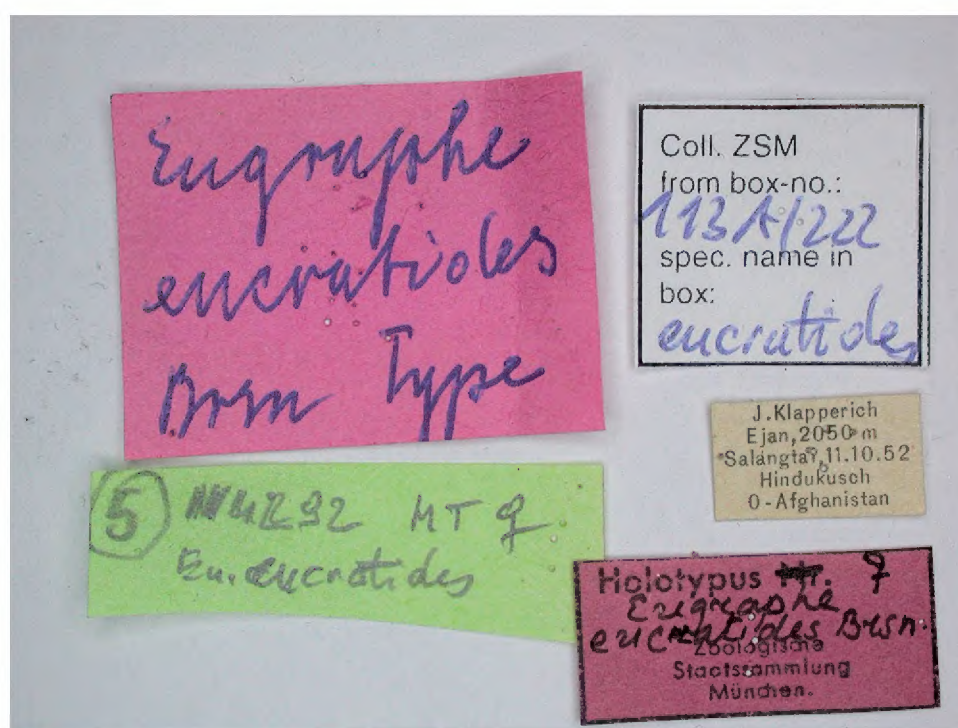 Eugraphe
eucratides
Brsn Type
Coll. ZSM
from box-no.:
113A/222
spec. name in
box:
eucratides
J.Klapperich
Ejan,2050 m
Salangtal,11.10.52
Hindukusch
O-Afghanistan
5 MT ♀
Eu. eucratides
Holotypus Nr. ♀
Eugraphe
eucratides Brsn.
Zoologische
Staatssammlung
München.